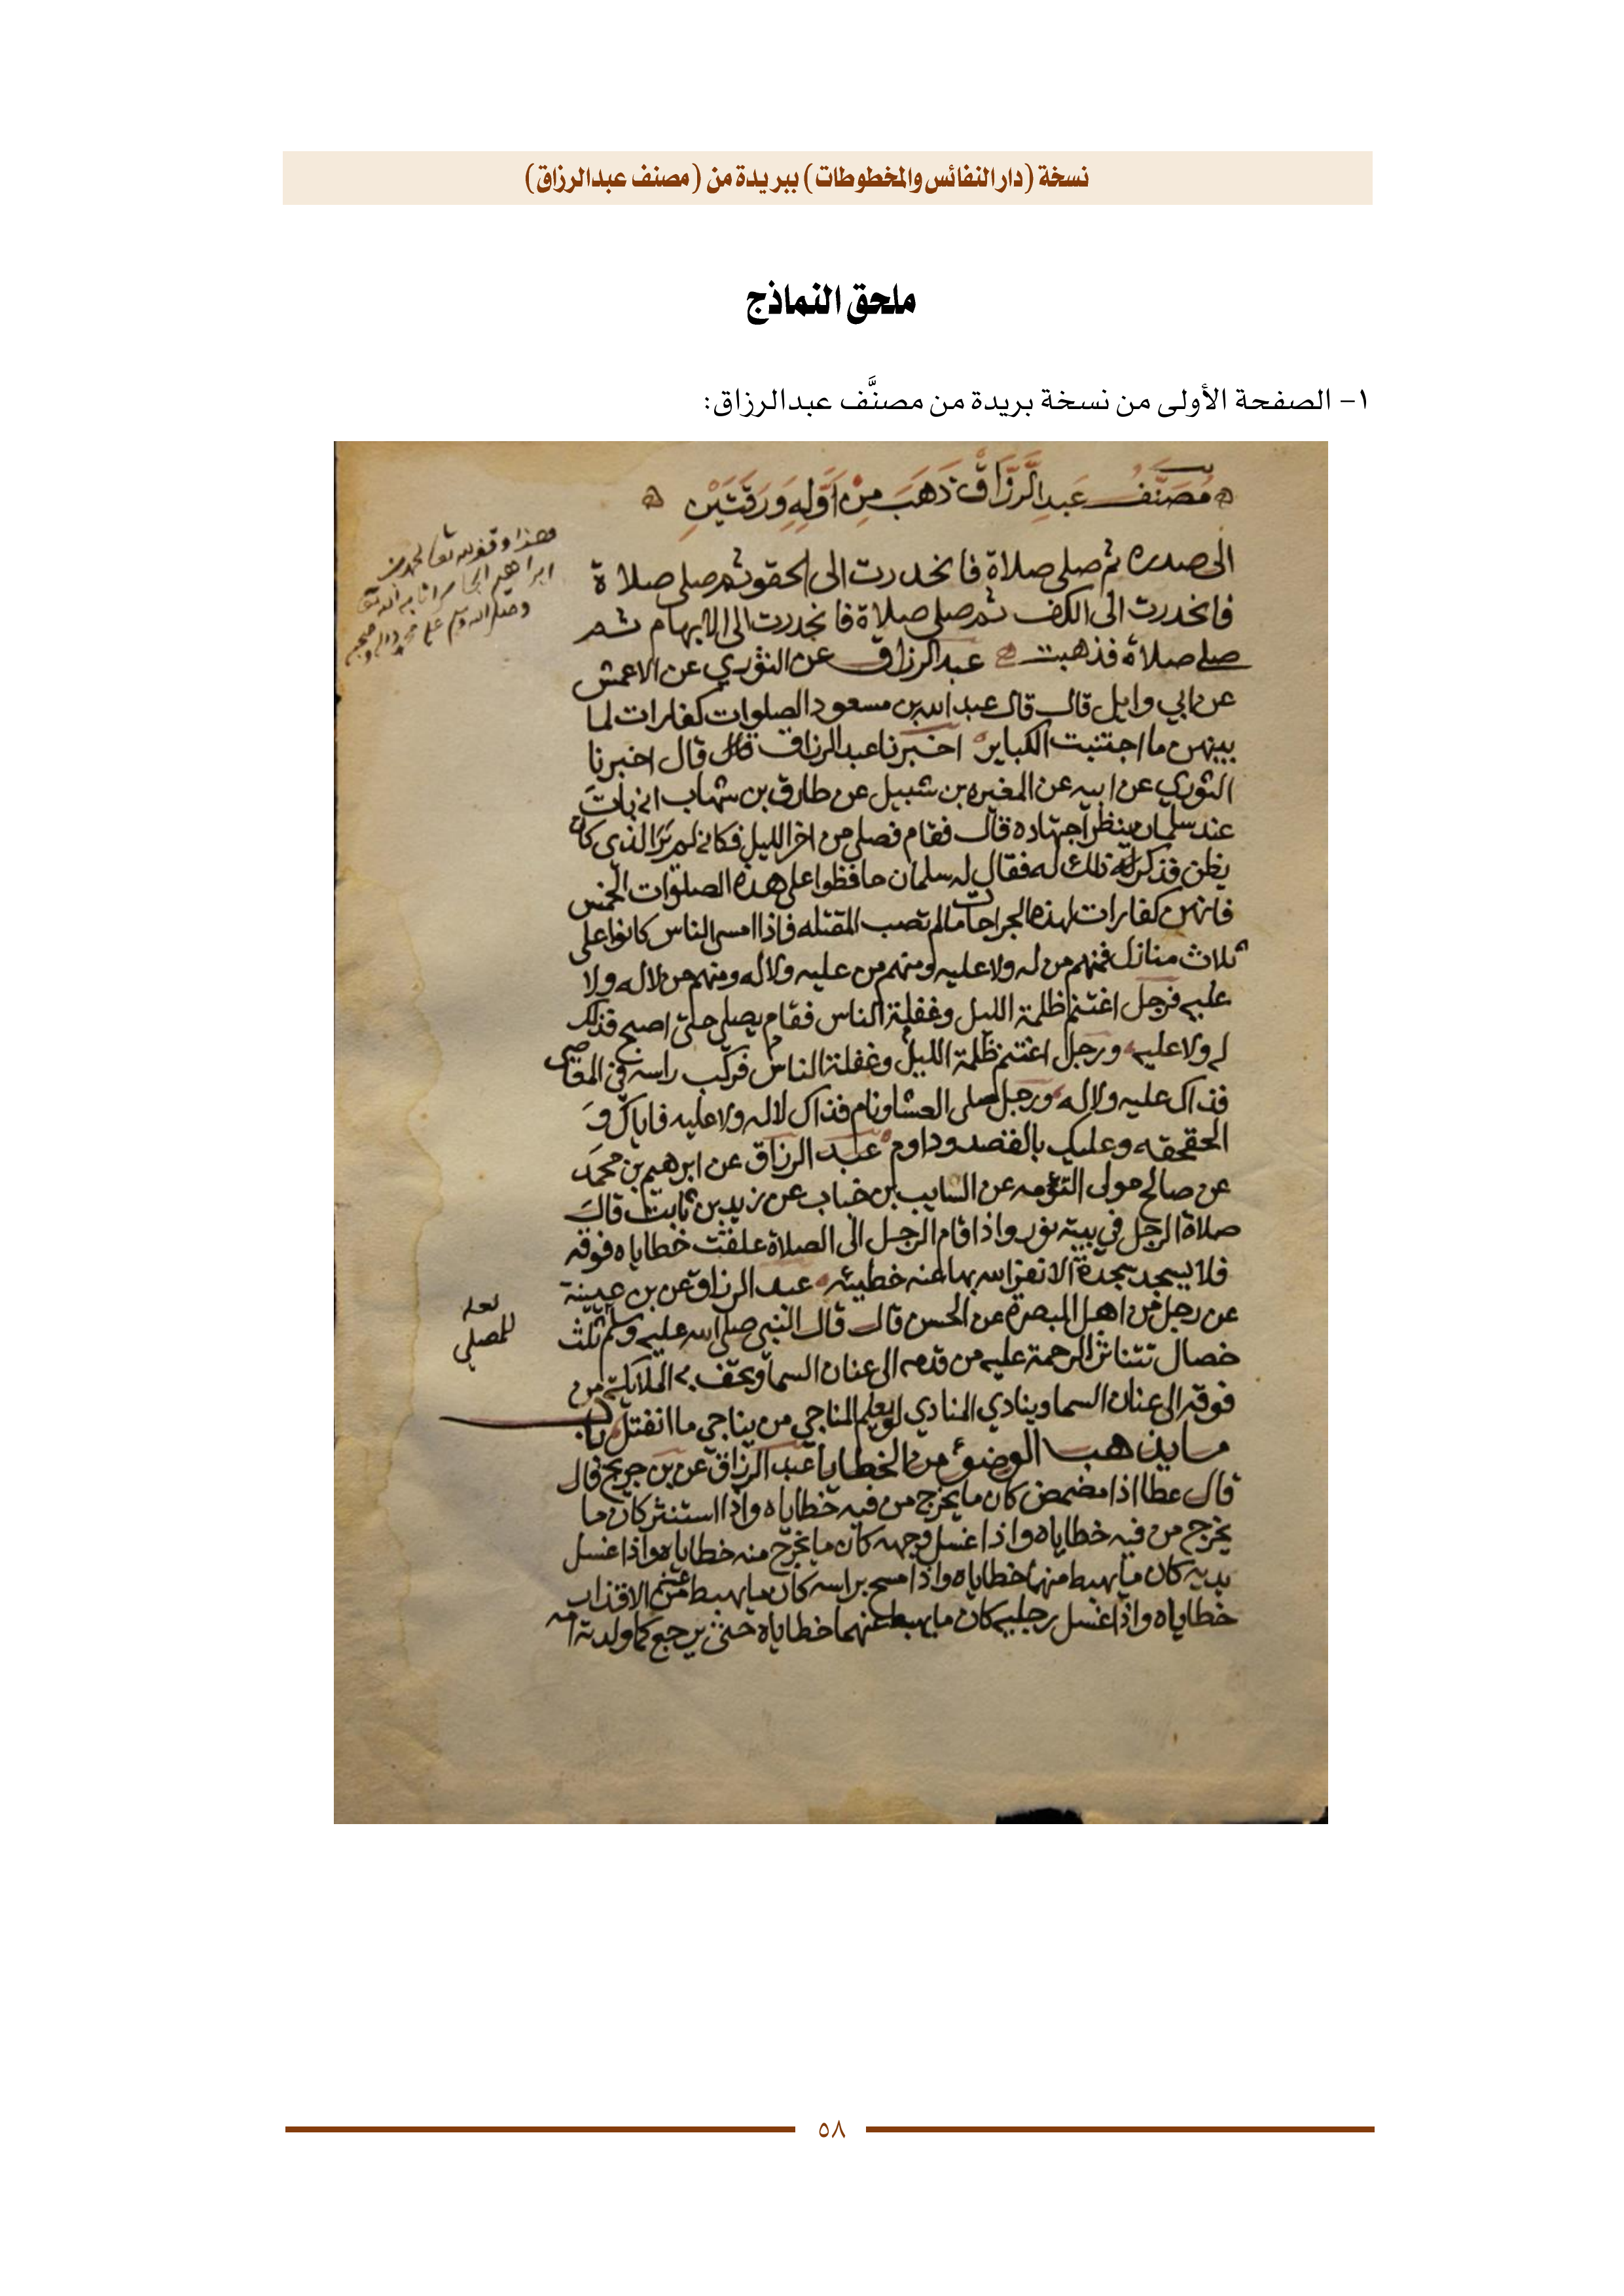 نسخة (دار النفائس والمخطوطات) ببريدة من (مصنف عبدالرزاق)
ملحق النماذج
١- الصفحة الأولى من نسخة بريدة من مصنَّف عبدالرزاق:
مُصَنَّفُ عَبدِ الرَّزَّاقْ ذَهَبَ مِنْ أَوَّلِهِ وَرَقَتَيْنِ
الى صدره ثم صلى صلاة فانحدرت الى الحقو ثم صلى صلاة
فانحدرت الى الكف ثم صلى صلاة فانحدرت الى الابهام ثم
صلى صلاة فذهبت عبد الرزاق عن الثوري عن الاعمش
عن ابي وايل قال قال عبد الله بن مسعود الصلوات كفارات لما
بينهن ما اجتنبت الكباير اخبرنا عبد الرزاق قال قال اخبرنا
الثوري عن ابيه عن المغيره بن شبيل عن طارق بن شهاب انه بات
عند سلمان ينظر اجتهاده قال فقام فصلى من اخر الليل فكانه لم ير الذي كان
يظن فذكر ذلك له فقال له سلمان حافظوا على هذه الصلوات الخمس
فانهن كفارات لهذه الجراحات ما لم تصب المقتله فاذا امسى الناس كانوا على
ثلاث منازل فمنهم من له ولا عليه ومنهم من عليه ولا له ومنهم من لا له ولا
عليه فرجل اغتنم ظلمة الليل وغفلة الناس فقام يصلي حتى اصبح فذلك
له ولا عليه ورجل اغتنم ظلمة الليل وغفلة الناس فركب راسه في المعاصي
فذاك عليه ولا له ورجل صلى العشا ونام فذاك لا له ولا عليه فاياك و
الحقحقه وعليك بالقصد وداوم عبد الرزاق عن ابرهيم بن محمد
عن صالح مولى التؤمه عن السايب بن خباب عن زيد بن ثابت قال
صلاة الرجل في بيته نور واذا قام الرجل الى الصلاة علقت خطاياه فوقه
فلا يسجد سجدة الا كفر الله بها عنه خطيئه عبد الرزاق عن بن عيينة
عن رجل من اهل البصرة عن الحسن قال قال النبي صلى الله عليه وسلم ثلث
خصال تتناثر الرحمة عليه من قدمه الى عنان السما وتحف به الملايكة من
فوقه الى عنان السما وينادي المنادي لو يعلم المناجي من يناجي ما انفتل باب
ما يذهب الوضوء من الخطايا عبد الرزاق عن بن جريج قال
قال عطا اذا مضمض كان ما يخرج من فيه خطاياه واذا استنثر كان ما
يخرج من فيه خطاياه واذا غسل وجهه كان ما يخرج منه خطاياه واذا غسل
يديه كان ما يهبط منها خطاياه واذا مسح براسه كان ما يهبط الاقذار
خطاياه واذا غسل رجليه كان ما يهبط عنهما خطاياه حتى يرجع كما ولدته امه
هذا وقف لله تعالى محمد بن
ابراهيم اثابه الله
وصلى الله وسلم على محمد واله وصحبه
لعله
للمصلي
٥٨